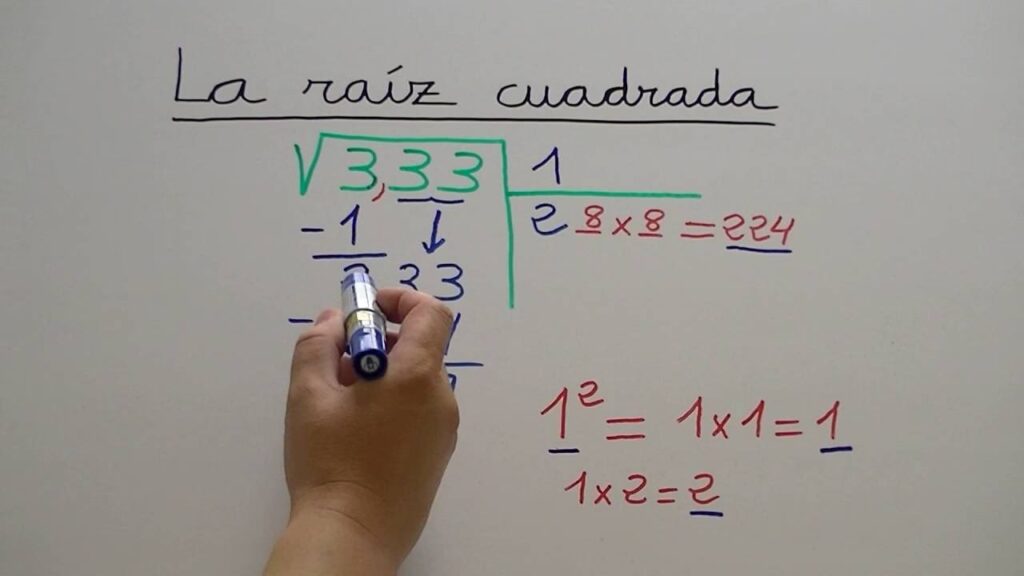 La raíz cuadrada
√3,33 1
- 1 2 8 x 8 = 224
33
-
1² = 1x1 = 1
1x2 = 2